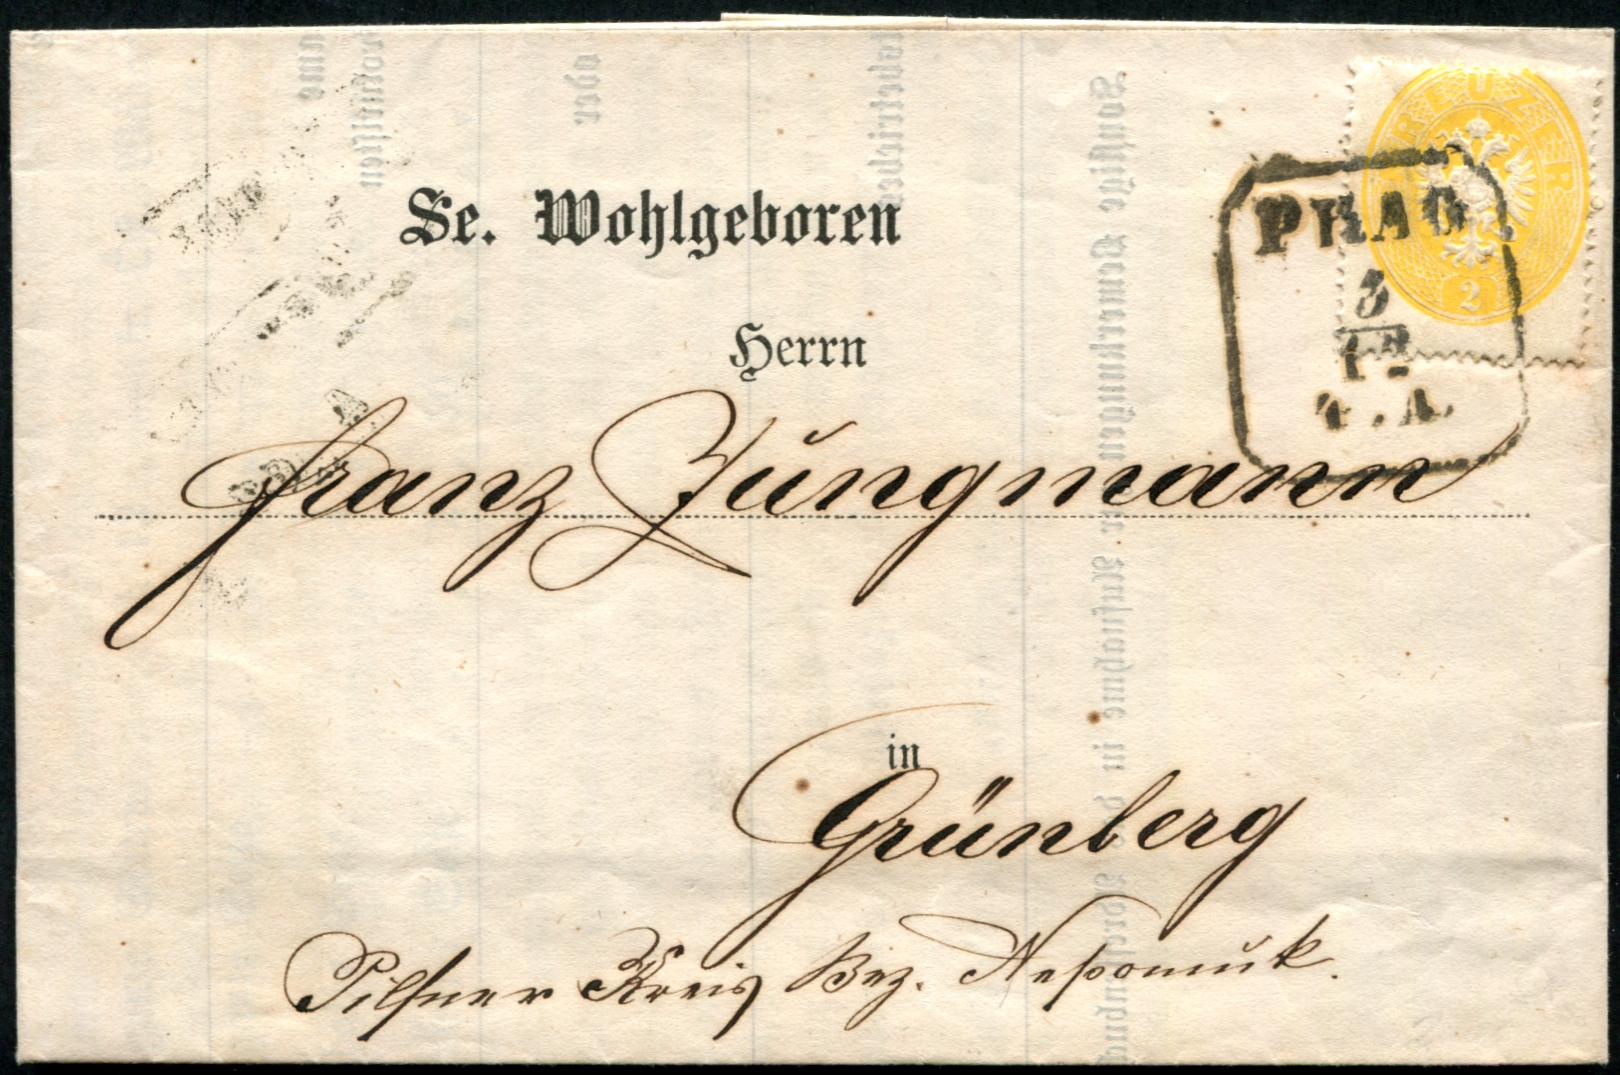 KREUZER
2
PRAG
5
12
Se. Wohlgeboren
Herrn
Franz Jungmann
in
Grünberg
Pilsner Kreis Bez. Nepomuk.